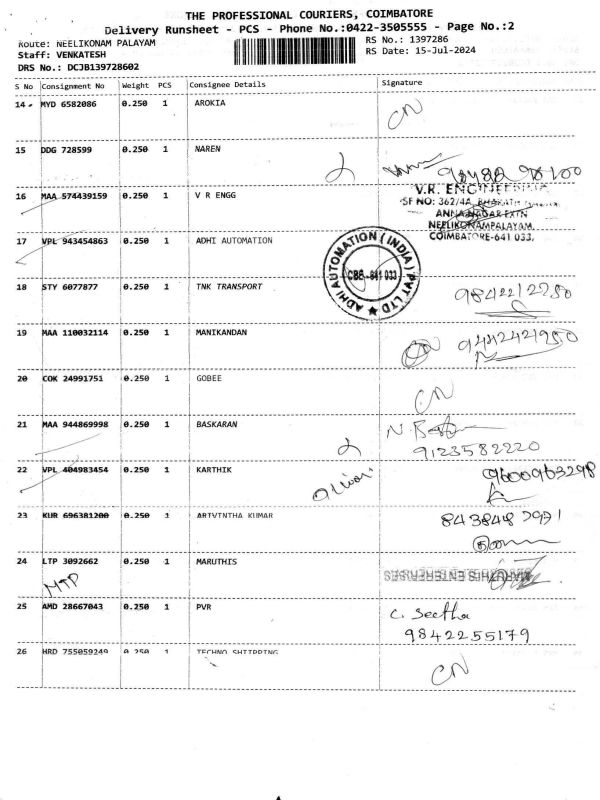 THE PROFESSIONAL COURIERS, COIMBATORE
Delivery Runsheet - PCS - Phone No.:0422-3505555 - Page No.:2
Route: NEELIKONAM PALAYAM
RS No.: 1397286
Staff: VENKATESH
RS Date: 15-Jul-2024
DRS No.: DCJB139728602
S No Consignment No Weight PCS Consignee Details Signature
14 MYD 6582086 0.250 1 AROKIA CN
15 DDG 728599 0.250 1 NAREN
16 MAA 574439159 0.250 1 V R ENGG
V.R. ENGINEERING
SF NO: 362/4A, BHARATH
ANNA NAGAR EXTN
NEELIKONAMPALAYAM,
COIMBATORE-641 033.
17 VPL 943454863 0.250 1 ADHI AUTOMATION
ADHI AUTOMATION (INDIA) PVT LTD ★
CBE-641 033
18 STY 6077877 0.250 1 TNK TRANSPORT
9842212250
19 MAA 110032114 0.250 1 MANIKANDAN
20 COK 24991751 0.250 1 GOBEE CN
21 MAA 944869998 0.250 1 BASKARAN
9123582220
22 VPL 404983454 0.250 1 KARTHIK
9600963298
23 KUR 696381200 0.250 1 ARIVINTHA KUMAR
24 LTP 3092662 0.250 1 MARUTHIS
MARUTHIS ENTERPRISES
MTP
25 AMD 28667043 0.250 1 PVR
C. Seetha
9842255179
26 HRD 755059249 0.250 1 TECHNO SHIIPPING CN